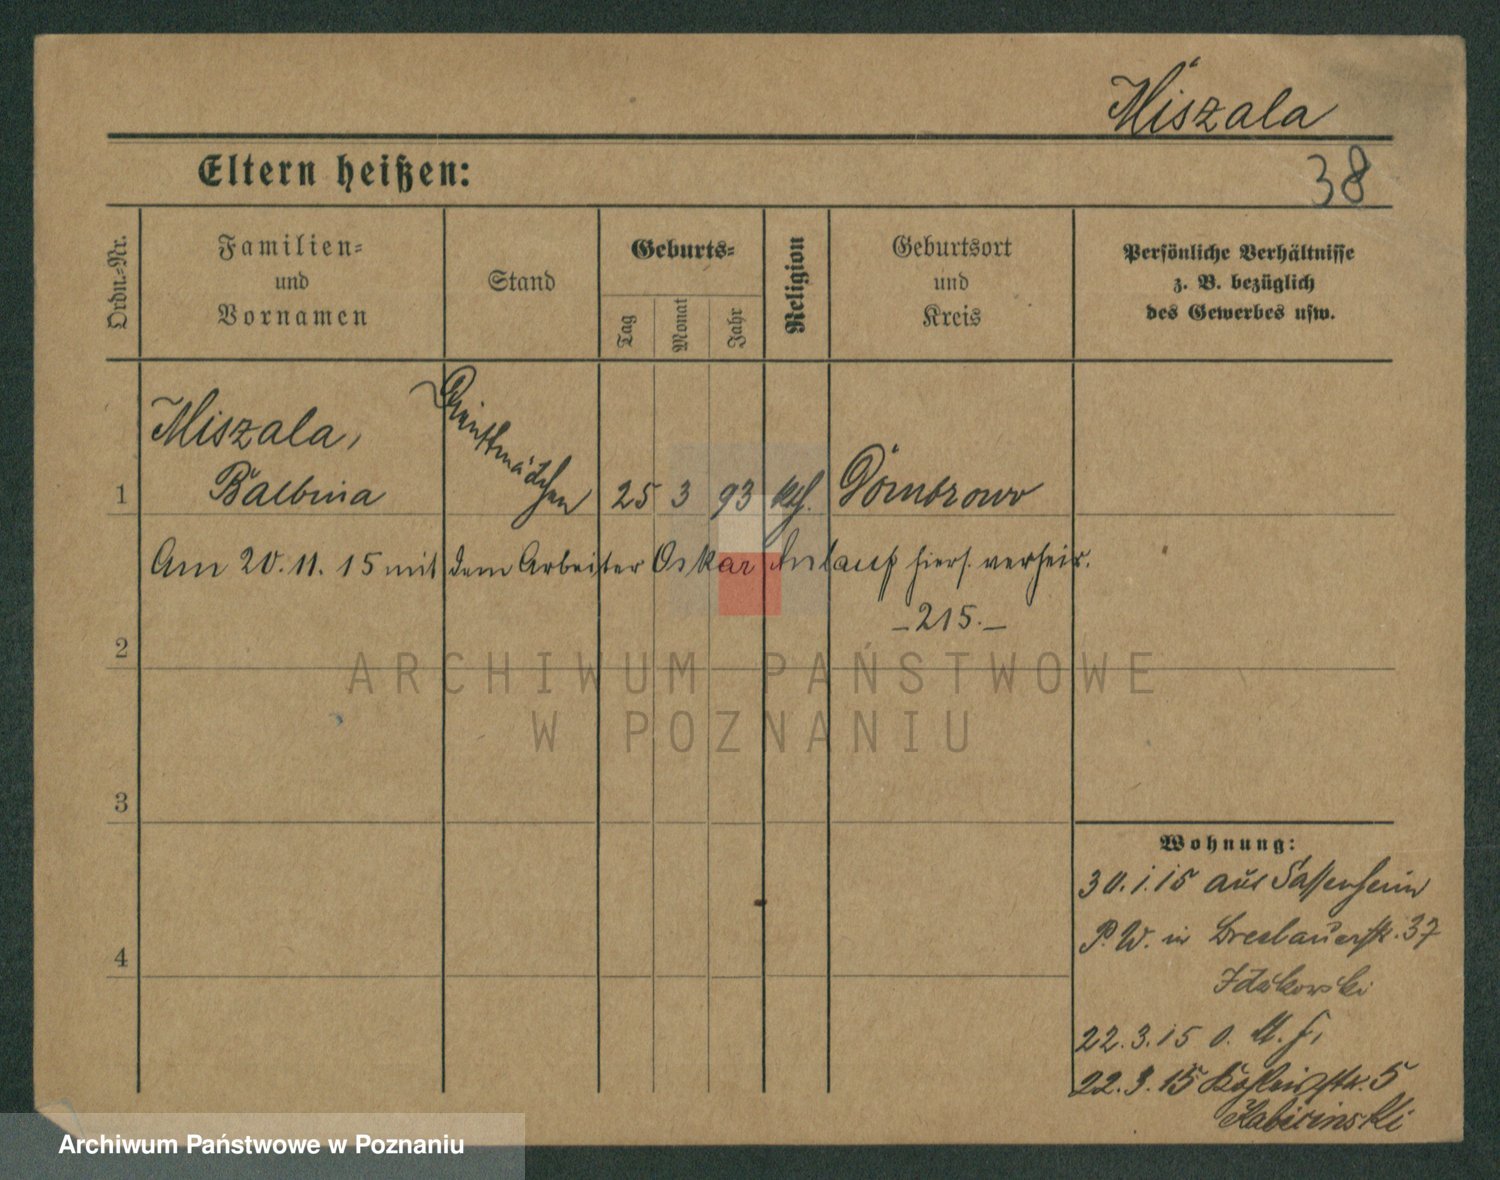 Miszala
Eltern heißen:
38
Ordn.-Nr.
Familien-
und
Vornamen
Stand
Geburts-
Tag
Monat
Jahr
Religion
Geburtsort
und
Kreis
Persönliche Verhältnisse
z. B. bezüglich
des Gewerbes usw.
Miszala,
Dienstmädchen
1 Balbina 25 3 93 kth. Dombrowo
Am 20.11.15 mit dem Arbeiter Oskar Anlauf hiers. verheir.
- 215. -
2
ARCHIWUM PAŃSTWOWE
W POZNANIU
3
Wohnung:
30.1.15 aus Sassenheim
P. W. in Breslauerstr. 37
4
22.3.15 o.
22.3.15 5
Archiwum Państwowe w Poznaniu